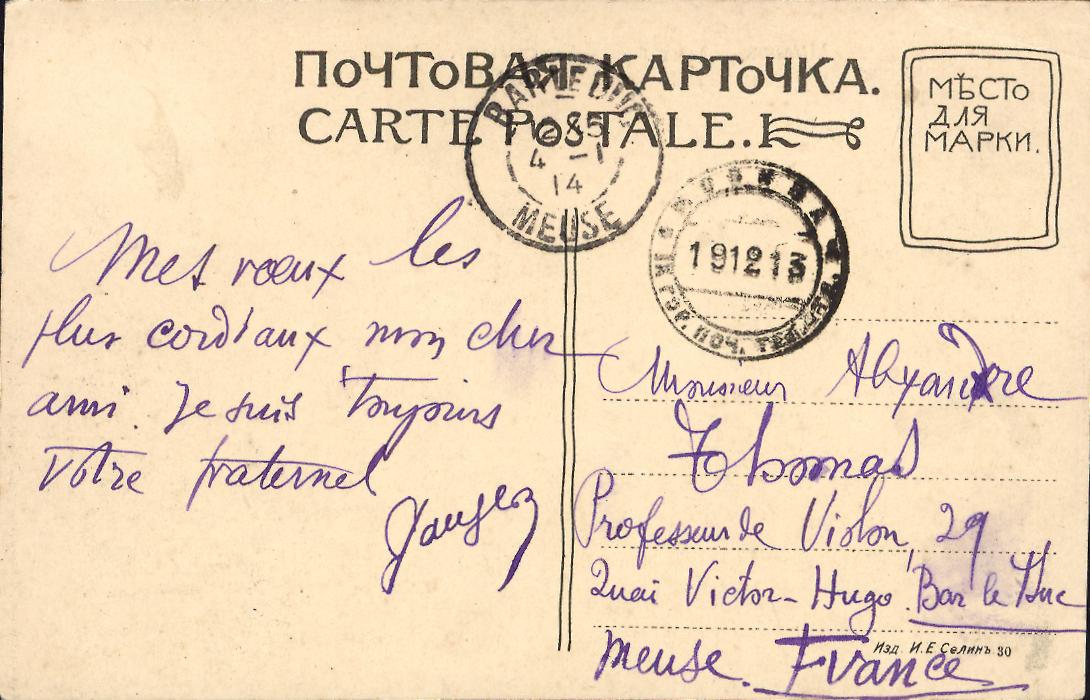 ПОЧТОВАЯ КАРТОЧКА.
CARTE POSTALE.
МѢСТО
ДЛЯ
МАРКИ.
BAR-LE-DUC
4 -1
14
MEUSE
МОСКВА
191213
ГОР. ПОЧ. ТЕЛ.
Mes vœux les
plus cordiaux mon cher
ami. Je suis toujours
Votre fraternel
Monsieur Alexandre
Thomas
Professeur de Violon, 29
Quai Victor-Hugo. Bar le Duc
Meuse. France
Изд. И.Е.Селинъ 30